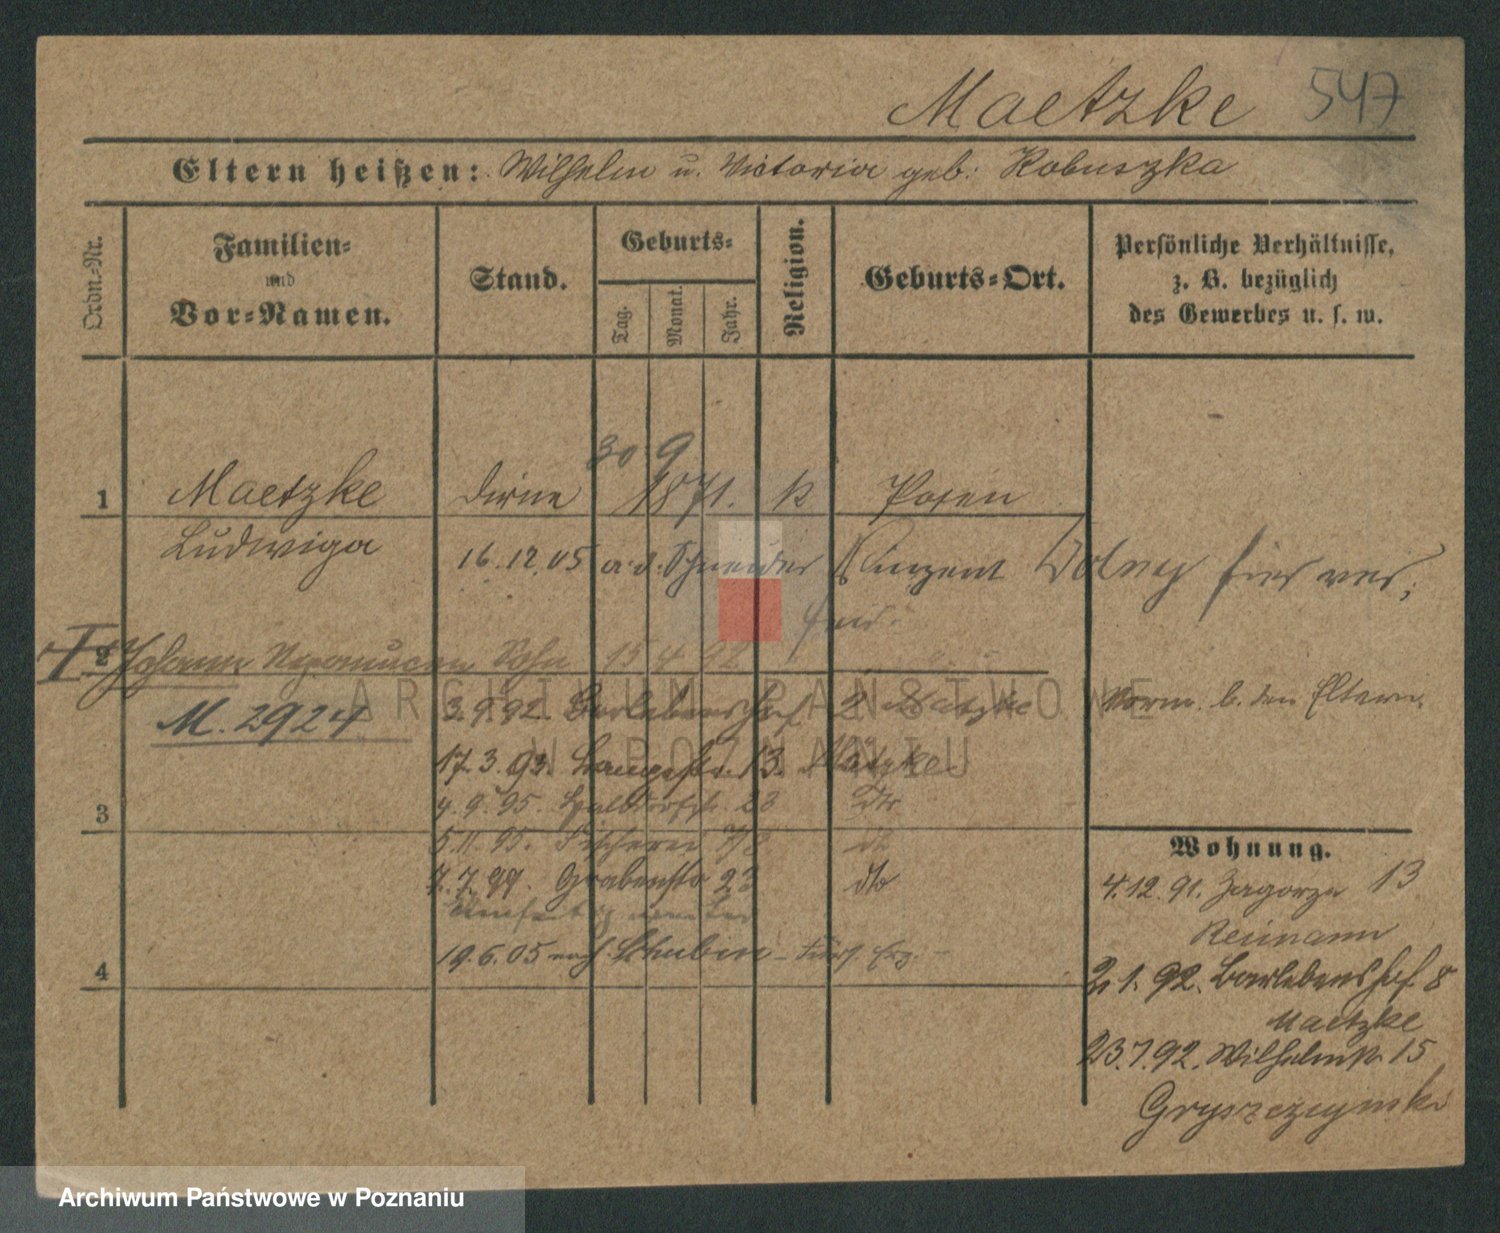 Maetzke 547
Eltern heißen: Wilhelm u. Victoria geb: Kobuszka
Ordn.-Nr.
Familien-
und
Vor-Namen.
Stand.
Geburts-
Tag.
Monat.
Jahr.
Religion.
Geburts-Ort.
Persönliche Verhältnisse,
z. B. bezüglich
des Gewerbes u. s. w.
30 9
1 Maetzke Dirne 1871. k Posen
Ludwiga 16.12.05 a. d. Schneider Vinzent Dolney hier ver;
2 Johann Nepomucen Sohn 15 4 92
M. 2924 3.9.92. Barlebenshof 2 Matzke Vorm. b. den Eltern.
17.3.93. Langestr. 13. Matzke
3 4.9.95. 23 Dto
5.11.95. Fischerei 7/8 dto
7.7.99. Grabenstr 23 dto
19.6.05 nach Schubin
4
Wohnung.
4.12.91. Zagorze 13
Reimann
2.1.92. Barlebenshof 8
Maetzke
23.7.92. Wilhelmstr. 15
Gryszczynski
ARCHIWUM PAŃSTWOWE
W POZNANIU
Archiwum Państwowe w Poznaniu